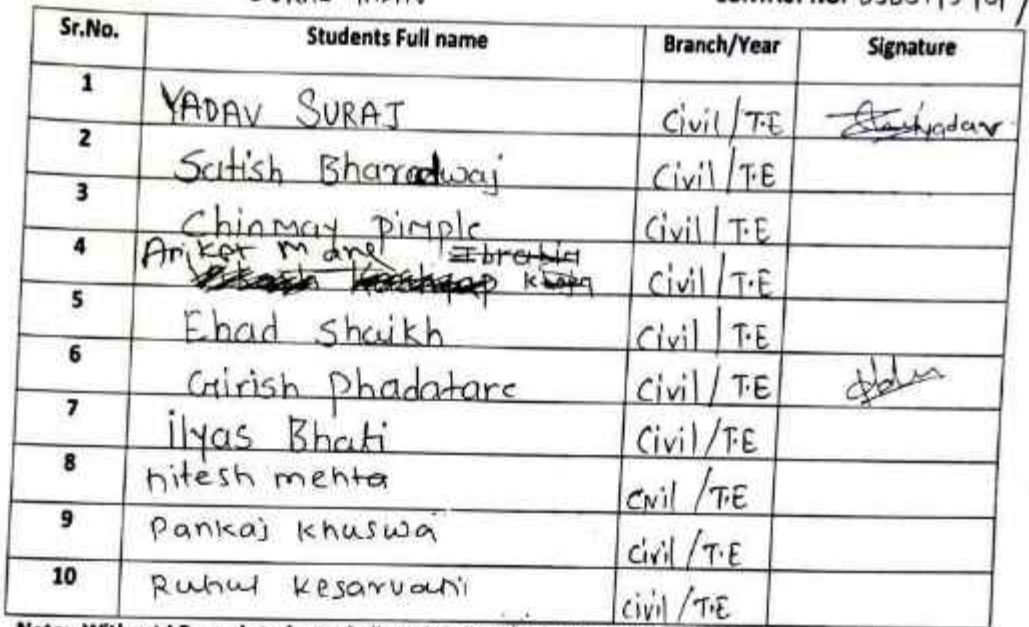 Sr.No. Students Full name Branch/Year Signature
1 YADAV SURAJ Civil/T.E
2 Satish Bharadwaj Civil/T.E
3 Chinmay Pimple Civil/T.E
4 Aniket Mane Civil/T.E
5 Ebad Shaikh Civil/T.E
6 Girish Phadatare Civil/T.E
7 ilyas Bhati Civil/T.E
8 nitesh mehta Civil/T.E
9 Pankaj Khuswa Civil/T.E
10 Ruhul Kesarvani Civil/T.E